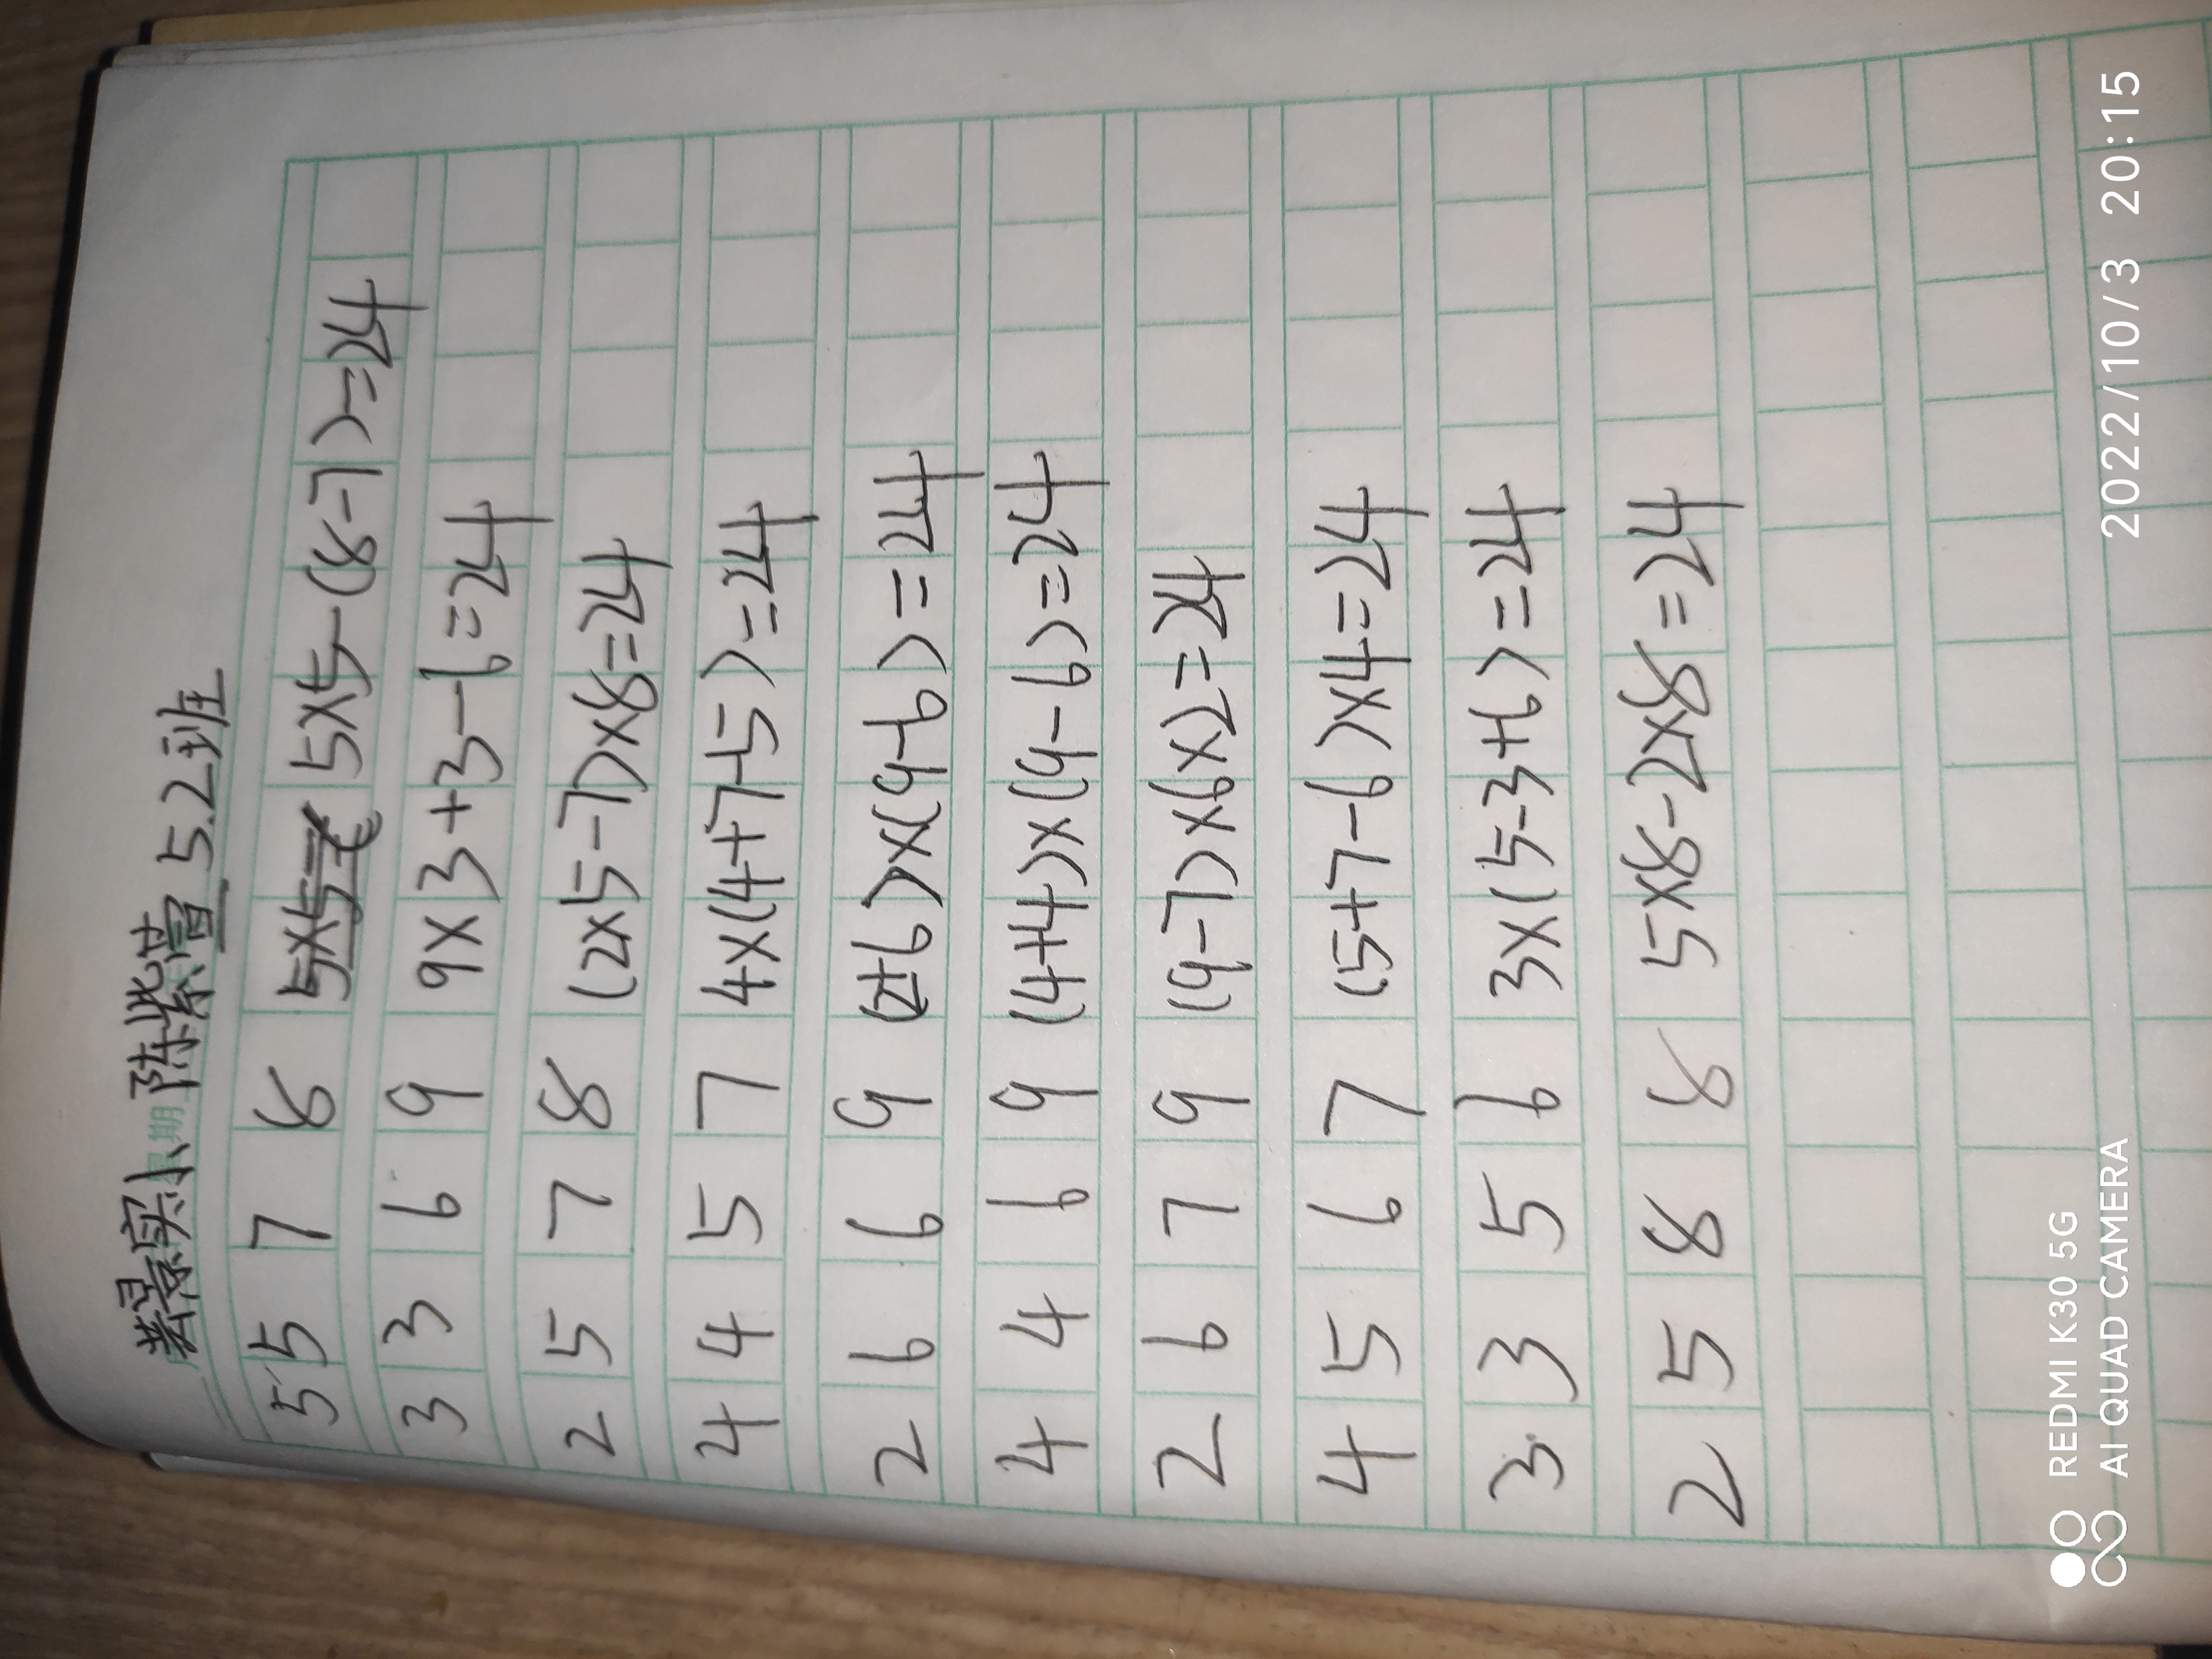 景实小 陈紫萱 5.2班
5 5 7 8 5×5-(8-7)=24
3 3 6 9 9×3+3-6=24
2 5 7 8 (2×5-7)×8=24
4 4 5 7 4×(4+7-5)=24
2 6 6 9 (2+6)×(9-6)=24
4 4 6 9 (4+4)×(9-6)=24
2 6 7 9 (9-7)×6×2=24
4 5 6 7 (5+7-6)×4=24
3 3 5 6 3×(5-3+6)=24
2 5 8 8 5×8-2×8=24
REDMI K30 5G
AI QUAD CAMERA
2022/10/3 20:15